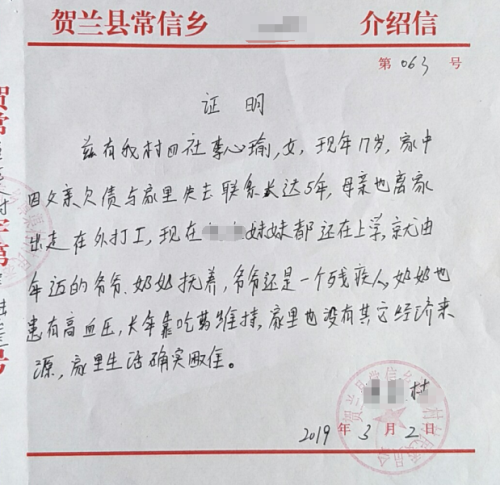 贺兰县常信乡 介绍信
第 063 号
证 明
兹有我村四社李心瑜，女，现年17岁，家中
因父亲欠债与家里失去联系长达5年，母亲也离家
出走在外打工，现在 妹妹都还在上学，就由
年迈的爷爷、奶奶抚养，爷爷还是一个残疾人，奶奶也
患有高血压，长年靠吃药维持，家里也没有其它经济来
源，家里生活确实困难。
村
2019 年 3 月 2 日